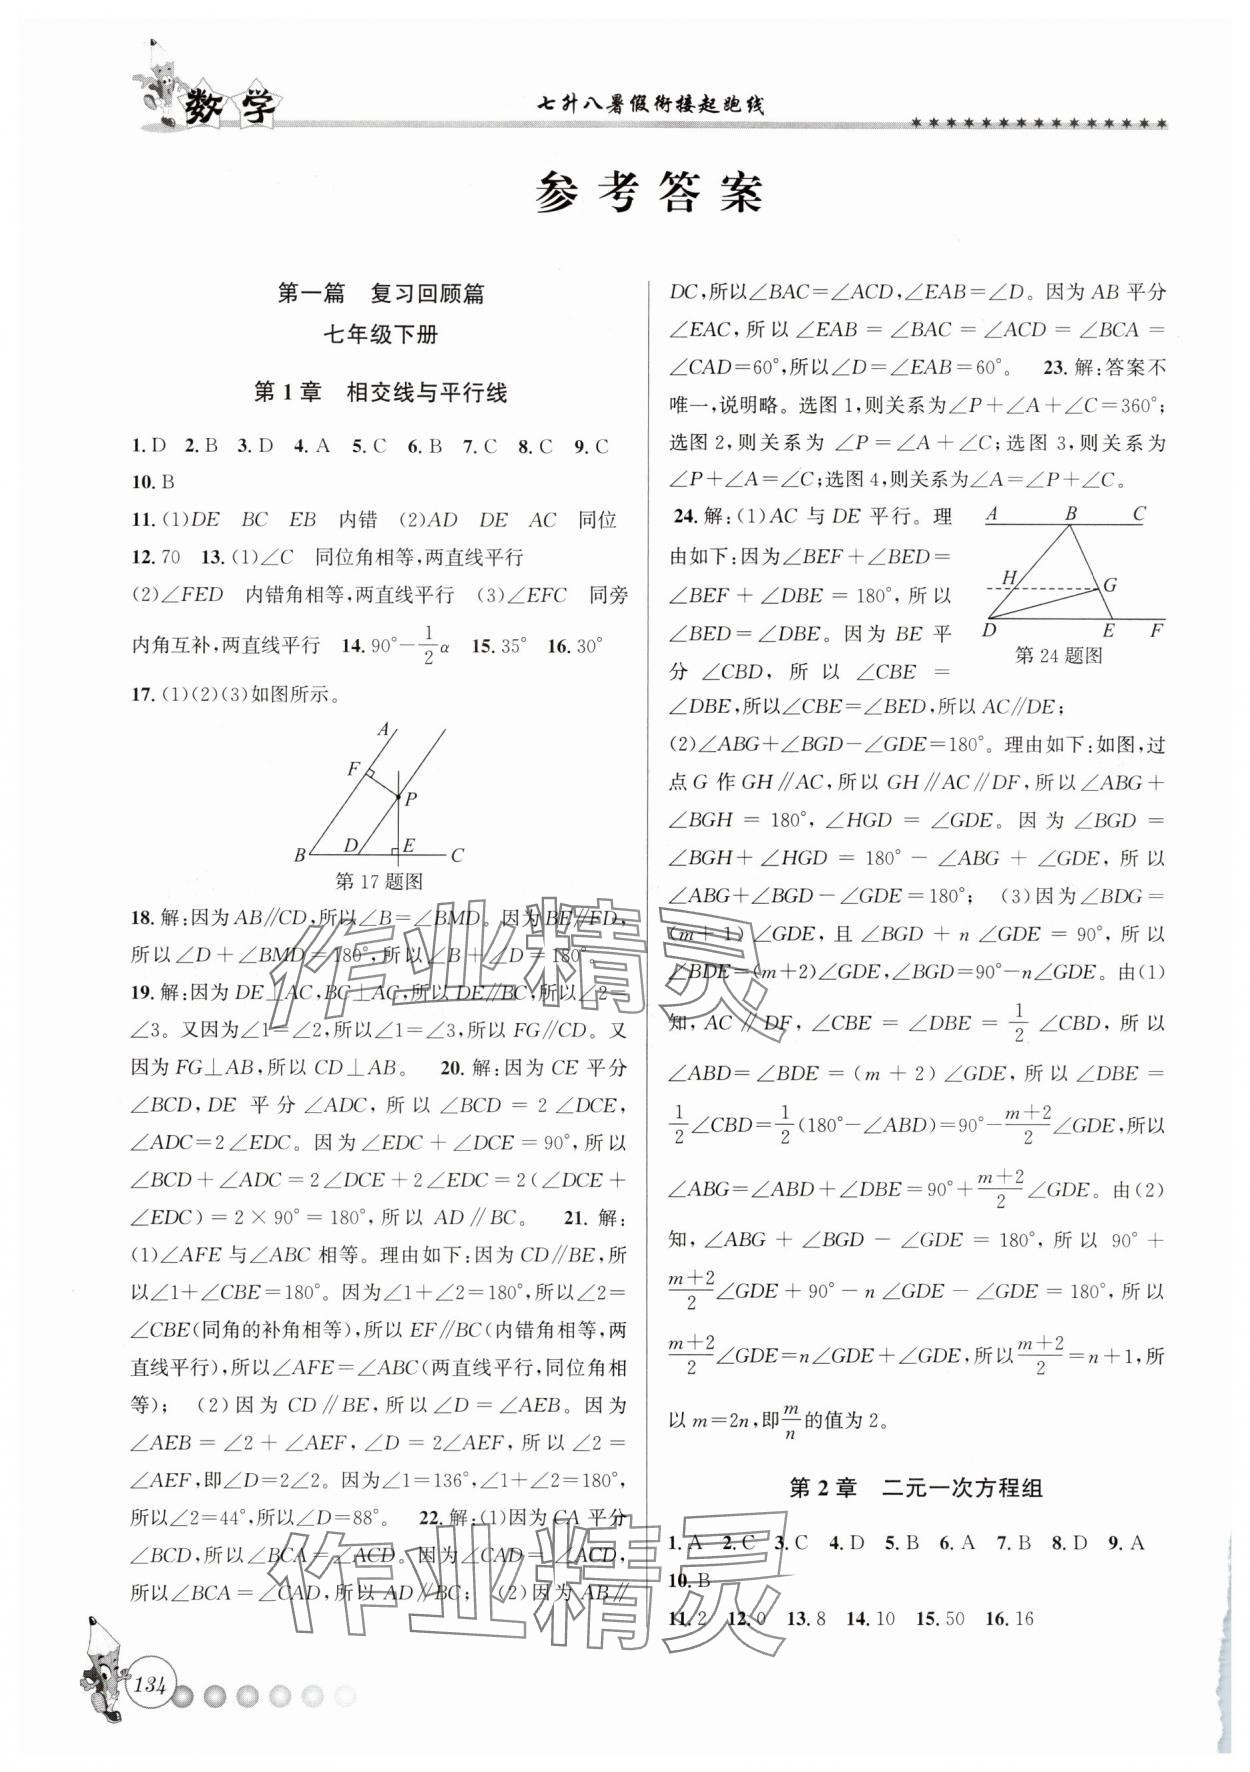 数学
七升八暑假衔接起跑线
参考答案
第一篇 复习回顾篇
七年级下册
第1章 相交线与平行线
1. D 2. B 3. D 4. A 5. C 6. B 7. C 8. C 9. C
10. B
11. (1)DE BC EB 内错 (2)AD DE AC 同位
12. 70 13. (1)∠C 同位角相等,两直线平行
(2)∠FED 内错角相等,两直线平行 (3)∠EFC 同旁
内角互补,两直线平行 14. 90°-1/2α 15. 35° 16. 30°
17. (1)(2)(3)如图所示。
A
F
P
B D E C
第17题图
18. 解:因为AB∥CD,所以∠B=∠BMD。因为BE∥FD,
所以∠D+∠BMD=180°,所以∠B+∠D=180°。
19. 解:因为DE⊥AC,BC⊥AC,所以DE∥BC,所以∠2=
∠3。又因为∠1=∠2,所以∠1=∠3,所以FG∥CD。又
因为FG⊥AB,所以CD⊥AB。 20. 解:因为CE平分
∠BCD,DE平分∠ADC,所以∠BCD=2∠DCE,
∠ADC=2∠EDC。因为∠EDC+∠DCE=90°,所以
∠BCD+∠ADC=2∠DCE+2∠EDC=2(∠DCE+
∠EDC)=2×90°=180°,所以AD∥BC。 21. 解:
(1)∠AFE与∠ABC相等。理由如下:因为CD∥BE,所
以∠1+∠CBE=180°。因为∠1+∠2=180°,所以∠2=
∠CBE(同角的补角相等),所以EF∥BC(内错角相等,两
直线平行),所以∠AFE=∠ABC(两直线平行,同位角相
等); (2)因为CD∥BE,所以∠D=∠AEB。因为
∠AEB=∠2+∠AEF,∠D=2∠AEF,所以∠2=
∠AEF,即∠D=2∠2。因为∠1=136°,∠1+∠2=180°,
所以∠2=44°,所以∠D=88°。 22. 解:(1)因为CA平分
∠BCD,所以∠BCA=∠ACD。因为∠CAD=∠ACD,
所以∠BCA=∠CAD,所以AD∥BC; (2)因为AB∥
DC,所以∠BAC=∠ACD,∠EAB=∠D。因为AB平分
∠EAC,所以∠EAB=∠BAC=∠ACD=∠BCA=
∠CAD=60°,所以∠D=∠EAB=60°。 23. 解:答案不
唯一,说明略。选图1,则关系为∠P+∠A+∠C=360°;
选图2,则关系为∠P=∠A+∠C;选图3,则关系为
∠P+∠A=∠C;选图4,则关系为∠A=∠P+∠C。
24. 解:(1)AC与DE平行。理
由如下:因为∠BEF+∠BED=
∠BEF+∠DBE=180°,所以
∠BED=∠DBE。因为BE平
分∠CBD,所以∠CBE=
A B C
H G
D E F
第24题图
∠DBE,所以∠CBE=∠BED,所以AC∥DE;
(2)∠ABG+∠BGD-∠GDE=180°。理由如下:如图,过
点G作GH∥AC,所以GH∥AC∥DF,所以∠ABG+
∠BGH=180°,∠HGD=∠GDE。因为∠BGD=
∠BGH+∠HGD=180°-∠ABG+∠GDE,所以
∠ABG+∠BGD-∠GDE=180°; (3)因为∠BDG=
(m+1)∠GDE,且∠BGD+n∠GDE=90°,所以
∠BDE=(m+2)∠GDE,∠BGD=90°-n∠GDE。由(1)
知,AC∥DF,∠CBE=∠DBE=1/2∠CBD,所以
∠ABD=∠BDE=(m+2)∠GDE,所以∠DBE=
1/2∠CBD=1/2(180°-∠ABD)=90°-(m+2)/2∠GDE,所以
∠ABG=∠ABD+∠DBE=90°+(m+2)/2∠GDE。由(2)
知,∠ABG+∠BGD-∠GDE=180°,所以90°+
(m+2)/2∠GDE+90°-n∠GDE-∠GDE=180°,所以
(m+2)/2∠GDE=n∠GDE+∠GDE,所以(m+2)/2=n+1,所
以m=2n,即m/n的值为2。
第2章 二元一次方程组
1. A 2. C 3. C 4. D 5. B 6. A 7. B 8. D 9. A
10. B
11. 2 12. 0 13. 8 14. 10 15. 50 16. 16
134
作业精灵
作业精灵